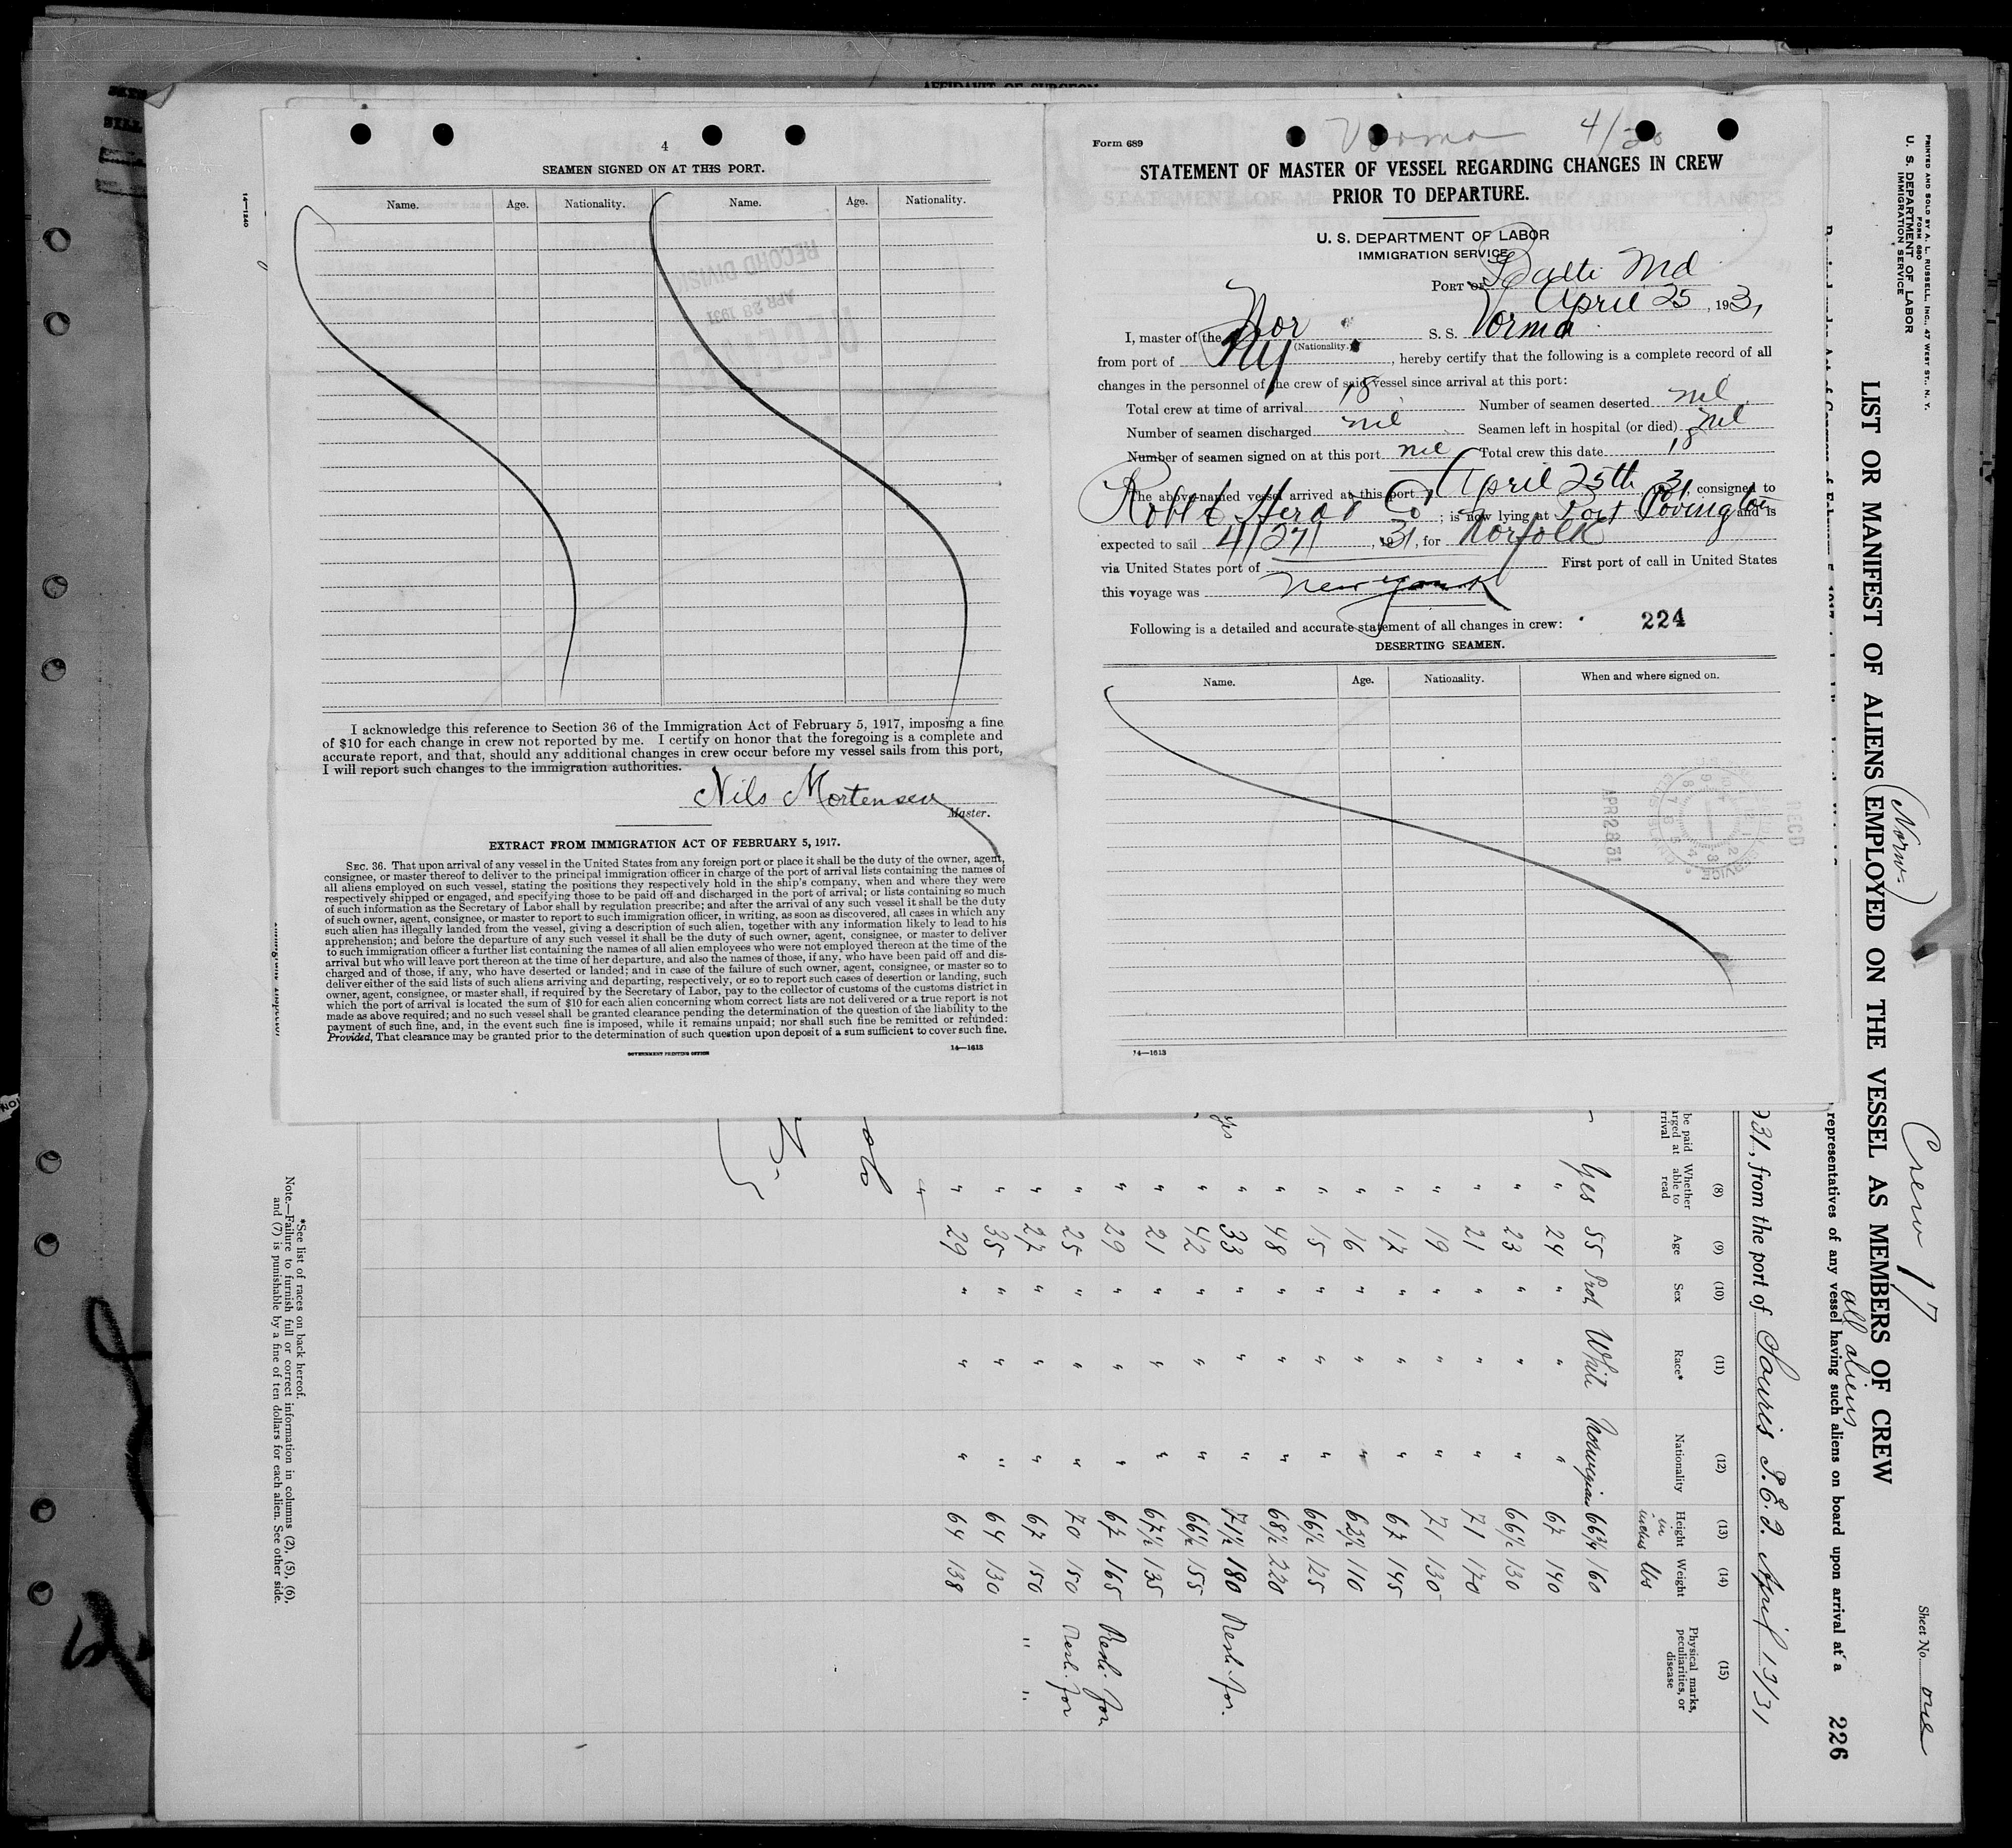 AFFIDAVIT OF SURGEON
4
SEAMEN SIGNED ON AT THIS PORT.
Name. Age. Nationality. Name. Age. Nationality.
RECORD DIVISION
APR 28 1931
RECEIVED
I acknowledge this reference to Section 36 of the Immigration Act of February 5, 1917, imposing a fine
of $10 for each change in crew not reported by me. I certify on honor that the foregoing is a complete and
accurate report, and that, should any additional changes in crew occur before my vessel sails from this port,
I will report such changes to the immigration authorities.
Nils Mortensen
Master.
EXTRACT FROM IMMIGRATION ACT OF FEBRUARY 5, 1917.
SEC. 36. That upon arrival of any vessel in the United States from any foreign port or place it shall be the duty of the owner, agent,
consignee, or master thereof to deliver to the principal immigration officer in charge of the port of arrival lists containing the names of
all aliens employed on such vessel, stating the positions they respectively hold in the ship's company, when and where they were
respectively shipped or engaged, and specifying those to be paid off and discharged in the port of arrival; or lists containing so much
of such information as the Secretary of Labor shall by regulation prescribe; and after the arrival of any such vessel it shall be the duty
of such owner, agent, consignee, or master to report to such immigration officer, in writing, as soon as discovered, all cases in which any
such alien has illegally landed from the vessel, giving a description of such alien, together with any information likely to lead to his
apprehension; and before the departure of any such vessel it shall be the duty of such owner, agent, consignee, or master to deliver
to such immigration officer a further list containing the names of all alien employees who were not employed thereon at the time of the
arrival but who will leave port thereon at the time of her departure, and also the names of those, if any, who have been paid off and dis-
charged and of those, if any, who have deserted or landed; and in case of the failure of such owner, agent, consignee, or master so to
deliver either of the said lists of such aliens arriving and departing, respectively, or so to report such cases of desertion or landing, such
owner, agent, consignee, or master shall, if required by the Secretary of Labor, pay to the collector of customs of the customs district in
which the port of arrival is located the sum of $10 for each alien concerning whom correct lists are not delivered or a true report is not
made as above required; and no such vessel shall be granted clearance pending the determination of the question of the liability to the
payment of such fine, and, in the event such fine is imposed, while it remains unpaid; nor shall such fine be remitted or refunded:
Provided, That clearance may be granted prior to the determination of such question upon deposit of a sum sufficient to cover such fine.
GOVERNMENT PRINTING OFFICE 14—1613
14—1240
Form 689
Vorma 4/20
STATEMENT OF MASTER OF VESSEL REGARDING CHANGES IN CREW
PRIOR TO DEPARTURE.
U. S. DEPARTMENT OF LABOR
IMMIGRATION SERVICE
PORT OF Balti Md
April 25, 1931
I, master of the Nor (Nationality.) S. S. Vorma
from port of Ny, hereby certify that the following is a complete record of all
changes in the personnel of the crew of said vessel since arrival at this port:
Total crew at time of arrival 18 Number of seamen deserted nil
Number of seamen discharged nil Seamen left in hospital (or died) nil
Number of seamen signed on at this port nil Total crew this date 18
The above-named vessel arrived at this port April 25th, 1931, consigned to
; is now lying at Port Covington and is
expected to sail 4/27/, 1931, for Norfolk
via United States port of First port of call in United States
this voyage was New York
Following is a detailed and accurate statement of all changes in crew: 224
DESERTING SEAMEN.
Name. Age. Nationality. When and where signed on.
RECD
APR 28 31
14—1613
PRINTED AND SOLD BY A. L. RUSSELL, INC., 47 WEST ST., N. Y.
FORM 680
U. S. DEPARTMENT OF LABOR
IMMIGRATION SERVICE
Crew 17
Sheet No. one
(Norw)
LIST OR MANIFEST OF ALIENS EMPLOYED ON THE VESSEL AS MEMBERS OF CREW
all aliens
representatives of any vessel having such aliens on board upon arrival at a
226
931, from the port of Souris P.E.I. April 13/31
be paid
arged at
rrival
(8) Whether able to read
(9) Age
(10) Sex
(11) Race*
(12) Nationality
(13) Height in inches
(14) Weight lbs
(15) Physical marks, peculiarities, or disease
Yes 55 White Norwegian 66¾ 160
" 24 " " " 67 140
" 23 " " " 66½ 130
" 21 " " " 71 170
" 19 " " " 71 130
" 17 " " " 67 145
" 16 " " " 62½ 110
" 15 " " " 66½ 125
" 48 " " " 68½ 220
yes " 33 " " " 71½ 180
" 42 " " " 66½ 155
" 21 " " " 67½ 135
" 29 " " " 67 165
" 25 " " " 70 150
" 27 " " " 67 150 " "
" 35 " " " 64 130
" 29 " " " 64 138
*See list of races on back hereof.
Note.—Failure to furnish full or correct information in columns (2), (5), (6),
and (7) is punishable by a fine of ten dollars for each alien. See other side.